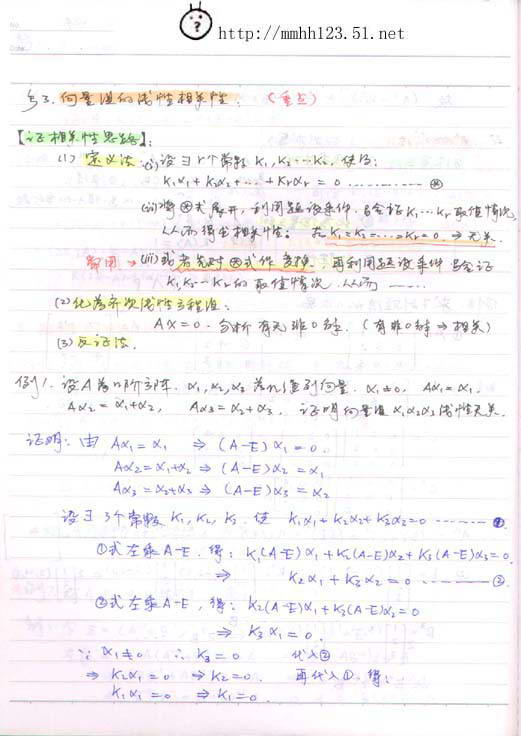 http://mmhh123.51.net
§3. 向量组的线性相关性. (重点)
【证相关性思路】:
(1) 定义法: (i) 设∃r个常数 K₁, K₂…Kᵣ, 使得:
K₁α₁+K₂α₂+…+Kᵣαᵣ = 0 ………… ⊛
(ii) 将⊛式展开, 利用题设条件 验证 K₁…Kᵣ 取值情况,
从而得出相关性. 若 K₁=K₂=…=Kᵣ=0 ⇒ 无关.
常用→(iii) 或者先对⊛式作变换, 再利用题设条件验证
K₁, K₂…Kᵣ 的取值情况. 从而 ……
(2) 化为齐次线性方程组:
AX=0. 分析有无非0解. (有非0解⇒相关)
(3) 反证法.
例1. 设A为n阶方阵. α₁, α₂, α₃ 为n维列向量. α₁≠0, Aα₁=α₁,
Aα₂=α₁+α₂, Aα₃=α₂+α₃, 证明向量组α₁α₂α₃线性无关.
证明: 由 Aα₁=α₁ ⇒ (A-E)α₁=0.
Aα₂=α₁+α₂ ⇒ (A-E)α₂=α₁
Aα₃=α₂+α₃ ⇒ (A-E)α₃=α₂
设∃3个常数 K₁, K₂, K₃. 使 K₁α₁+K₂α₂+K₃α₃=0 ……… ①
①式左乘A-E. 得: K₁(A-E)α₁+K₂(A-E)α₂+K₃(A-E)α₃=0.
⇒ K₂α₁+K₃α₂=0 ……… ②
②式左乘A-E, 得: K₂(A-E)α₁+K₃(A-E)α₂=0
⇒ K₃α₁=0.
∵ α₁≠0 ∴ K₃=0 代入②
⇒ K₂α₁=0 ⇒ K₂=0. 再代入①, 得:
K₁α₁=0 ⇒ K₁=0.